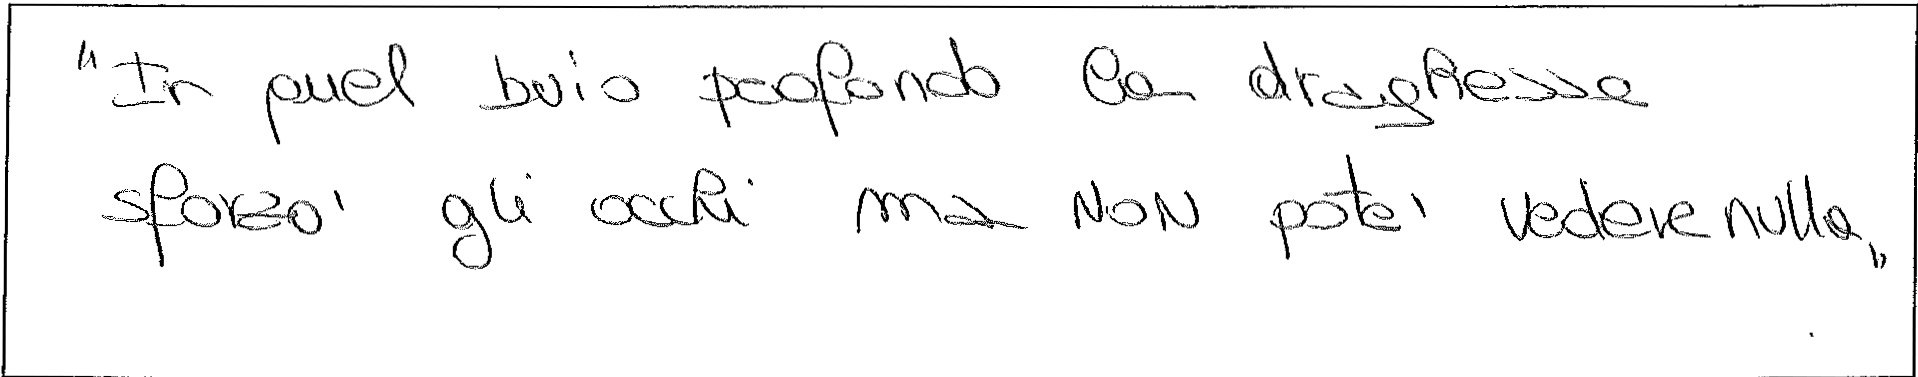 "In quel buio profondo la draghessa
sforzo' gli occhi ma NoN pote' vedere nulla"